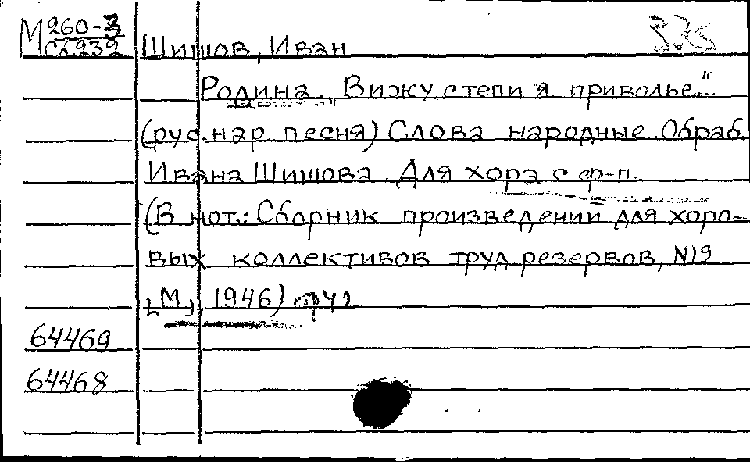 М 260-3
Сб232
Шишов, Иван
335
Родина. „Вижу степи я приволье".
(рус. нар. песня) Слова народные. Обраб.
Ивана Шишова. Для хора с ф-п.
(В нот.: Сборник произведений для хоро-
вых коллективов труд. резервов, N19
[М], 1946)
64469
64468